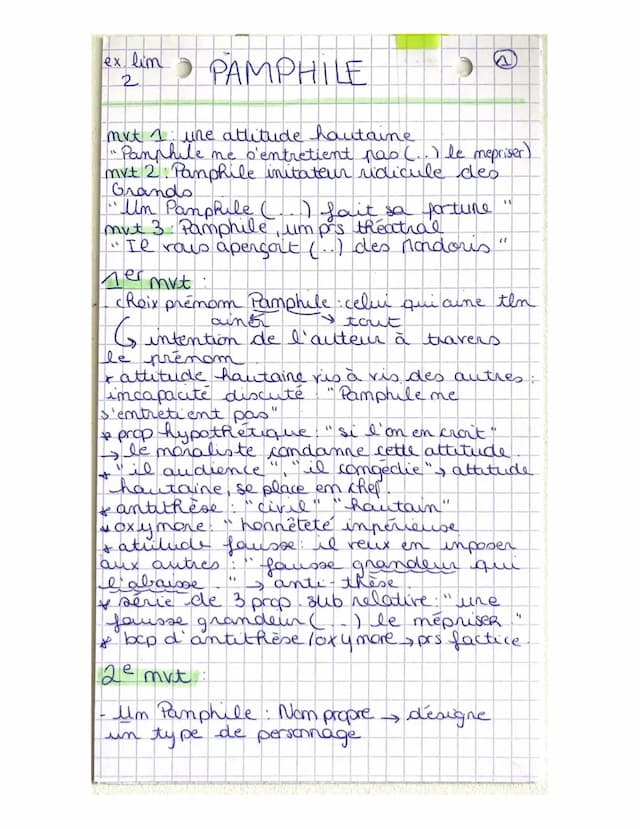 ex lim
2
PAMPHILE
1
mvt 1 : une attitude hautaine
"Pamphile ne s'entretient pas (...) le mepriser)
mvt 2 : Pamphile imitateur ridicule des
Grands
"Un Pamphile (...) fait sa fortune"
mvt 3 : Pamphile, um prs théatral
"Il vais aperçoit (...) des Mondoris"
1er mvt :
- choix prénom Pamphile : celui qui aime tlm
aimer → tout
↳ intention de l'auteur à travers
le prénom
* attitude hautaine vis à vis des autres :
incapacité discuté : "Pamphile ne
s'entretient pas"
* prop hypothétique : "si l'on en croit"
→ le moraliste condamne cette attitude.
* "il audience", "il congédie" → attitude
hautaine, se place en chef.
* antithèse : "civil" "hautain"
* oxymore : "honnêteté impérieuse
* attitude fausse : il veux en imposer
aux autres : "fausse grandeur qui
l'abaisse." → anti-thèse.
* série de 3 prop. sub relative : "une
fausse grandeur (...) le mépriser."
* bcp d'antithèse / oxymore → prs factice.
2e mvt :
- Um Pamphile : Nom propre → désigne
un type de personnage